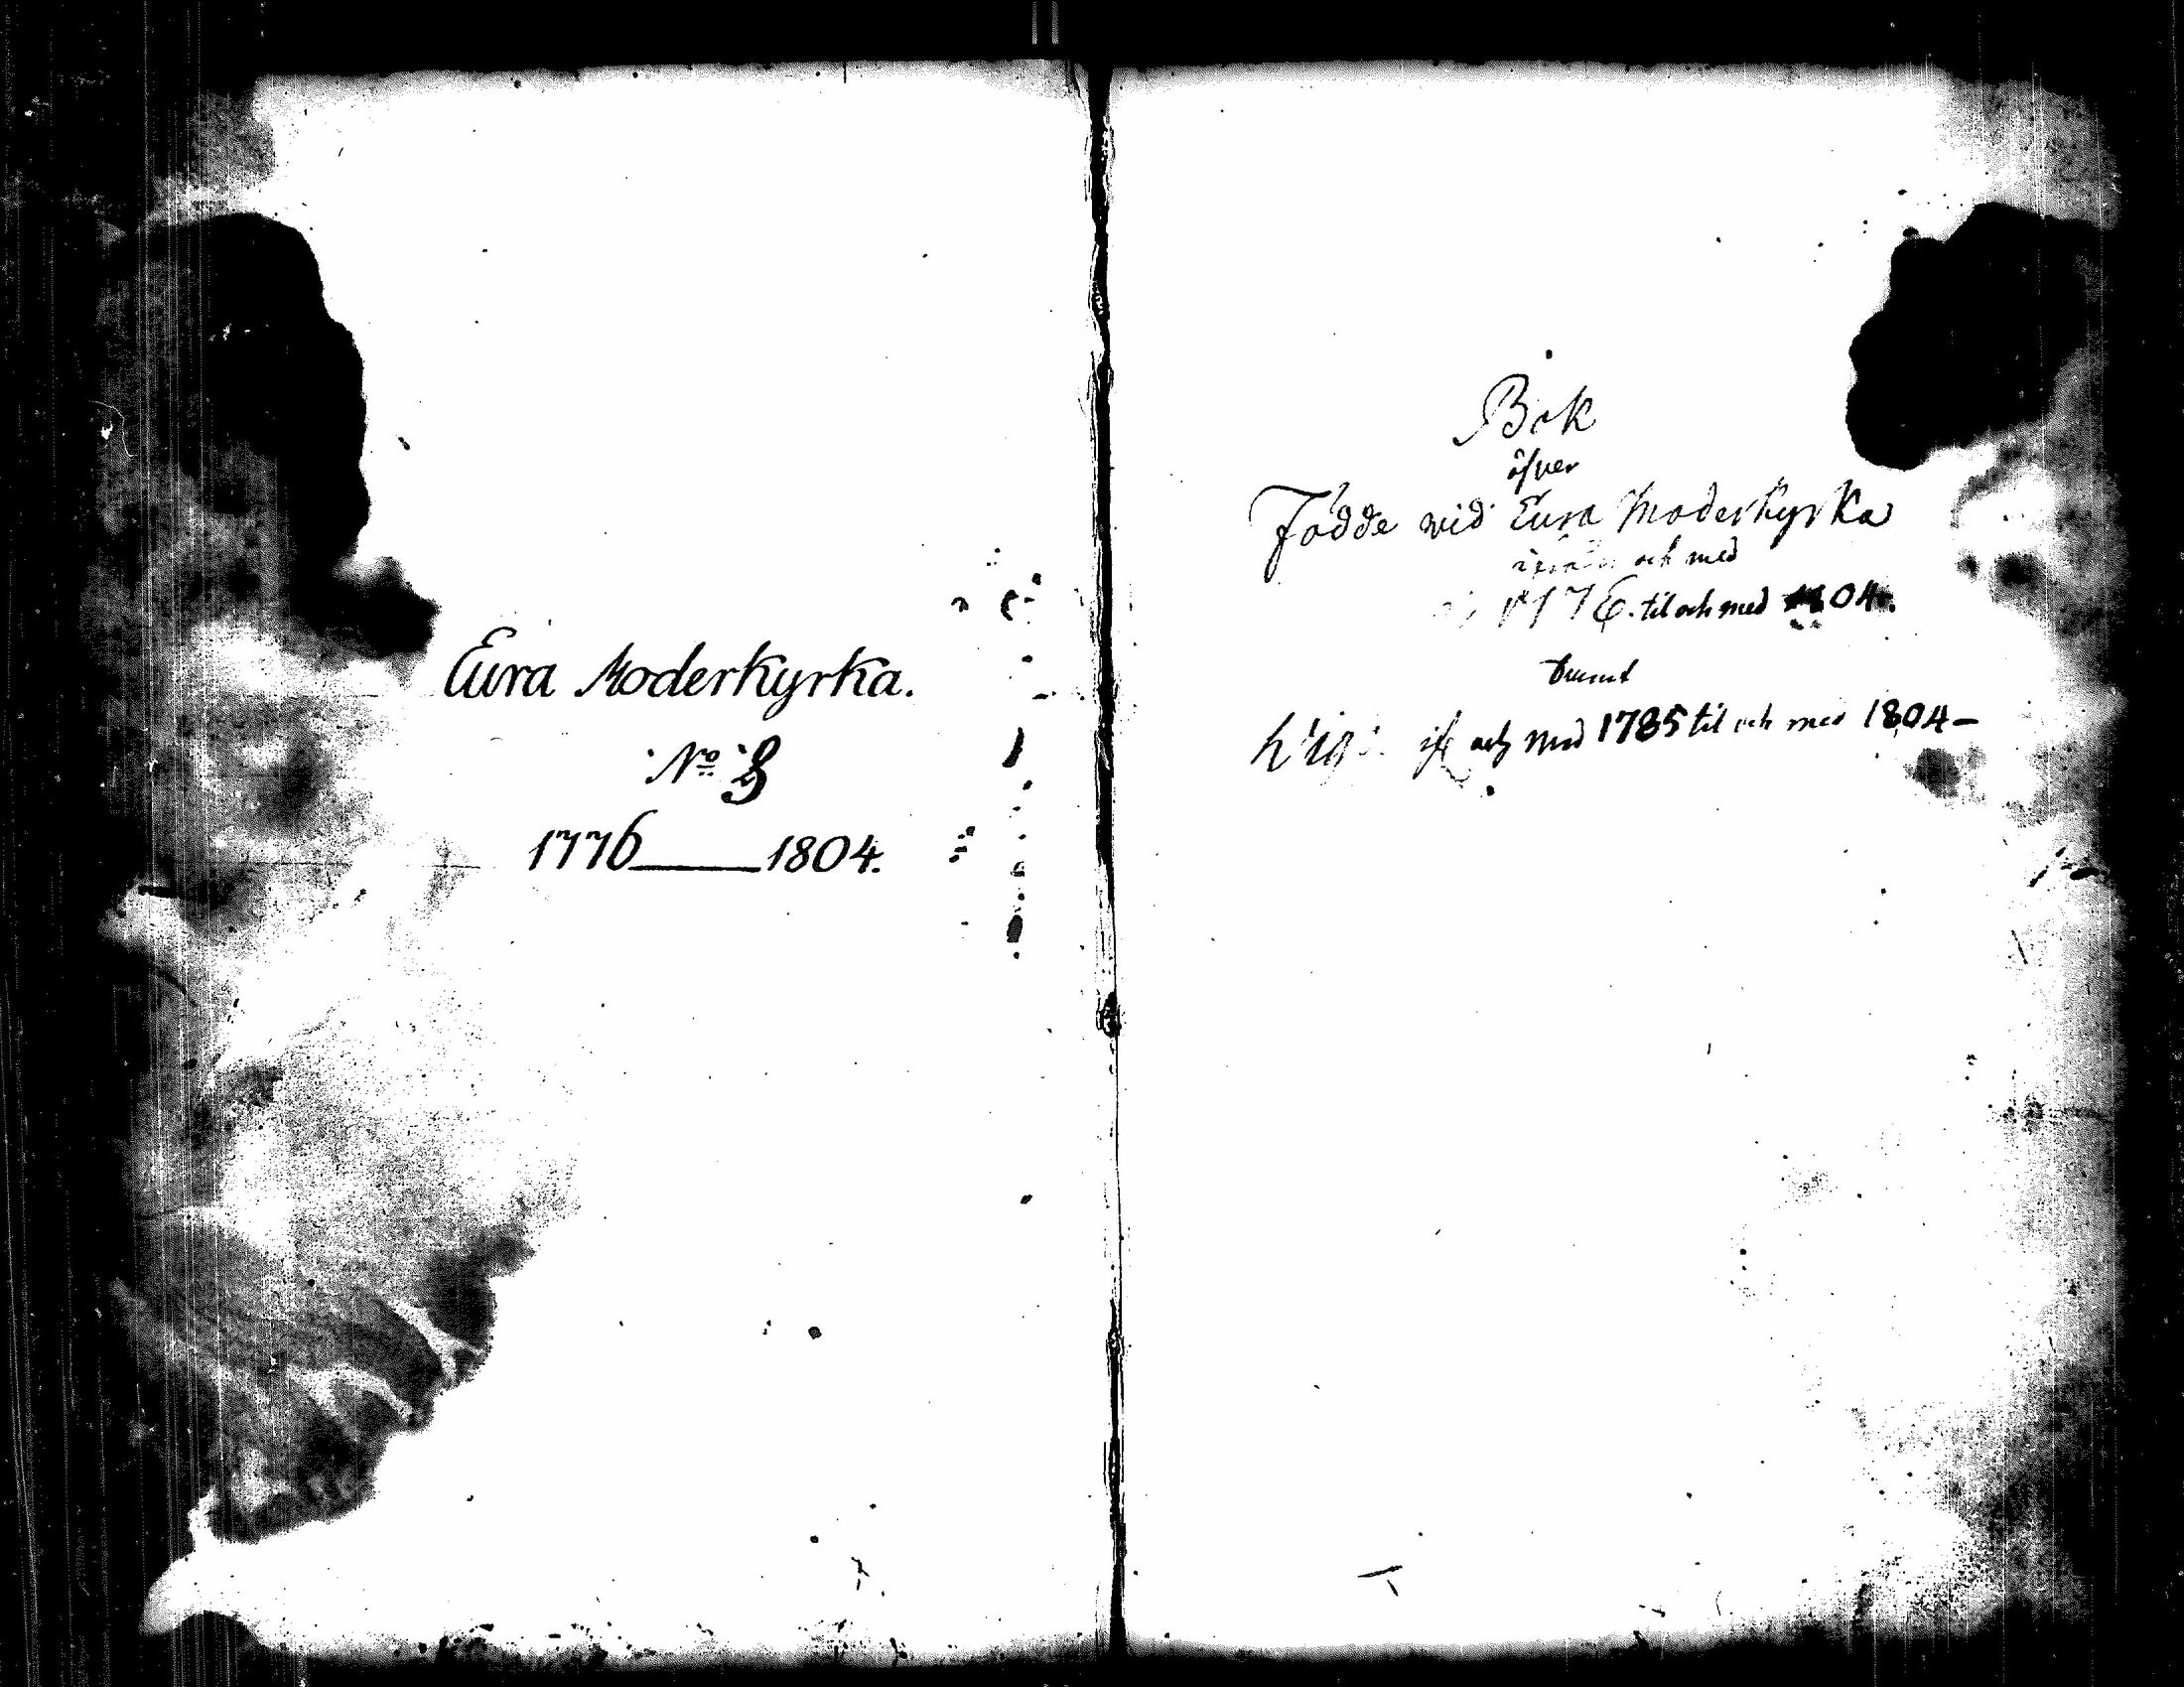 Eura Moderkyrka.
No 3
1776 — 1804.
Bok
öfver
Födde wid Eura Moderkyrka
ifrån och med
1776. til och med 1804.
samt
Wigde ifr och med 1785 til och med 1804 –